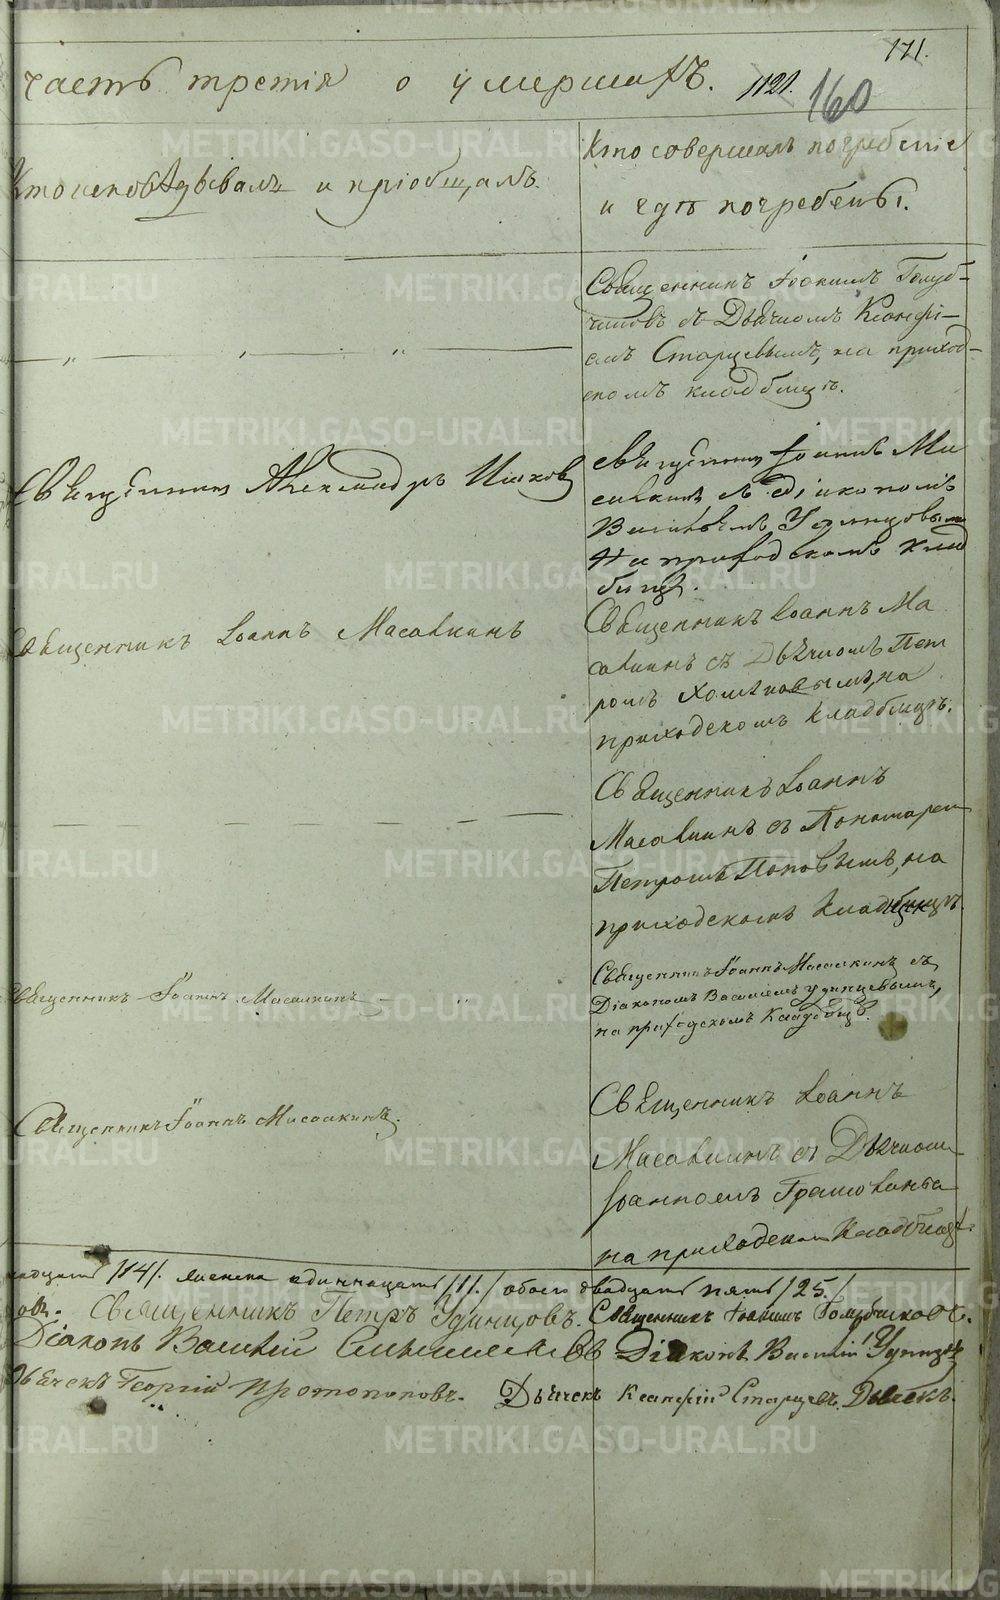 171.
часть третія о умершихъ. 1121. 160
Кто исповѣдывалъ и пріобщалъ.
Кто совершалъ погребеніе
и гдѣ погребены.
Священникъ Іоакимъ Голуб-
чиковъ съ Дьячкомъ Ксанфі-
емъ Старцевымъ, на приход-
скомъ кладбищѣ.
Священникъ Александръ
Священникъ Іоаннъ Ма
савкинъ съ діакономъ
Василіемъ Удинцовымъ
На приходскомъ клад
бищѣ.
Священникъ Іоаннъ Масавкинъ
Священникъ Іоаннъ Ма
савкинъ съ Дьячкомъ Пет
ромъ Хомяковымъ, на
приходскомъ кладбищѣ.
Священникъ Іоаннъ
Масавкинъ съ Пономарем
Петромъ Поповымъ, на
приходскомъ кладбищѣ.
Священникъ Іоаннъ Масавкинъ
Священникъ Іоаннъ Масавкинъ съ
Діакономъ Василіемъ Удинцевымъ,
на приходскомъ Кладбищѣ.
Священникъ Іоаннъ Масавкинъ.
Священникъ Іоаннъ
Масавкинъ съ Дьячкомъ
Іоанномъ
на приходском Кладбищѣ.
надцать /14/. женска одиннадцать /11/. обоего двадцать пять /25/
овъ. Священникъ Петръ Удинцовъ. Священникъ Іоакимъ Голубчиковъ.
Діаконъ Василій Діаконъ Василій Удинцовъ
Дьячекъ Георгій Протопоповъ. Дьячекъ Ксанфій Старцевъ. Дьячекъ.
METRIKI.GASO-URAL.RU